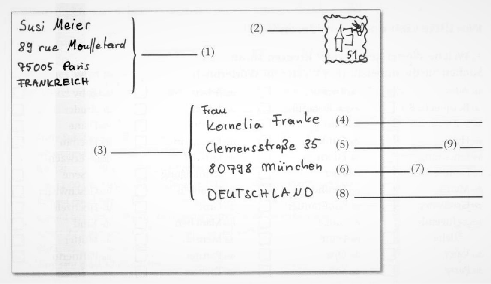 Susi Meier
89 rue Mouffetard
75005 Paris
FRANKREICH
(1)
(2)
51c
(3)
Frau
Kornelia Franke (4)
Clemensstraße 35 (5) (9)
80798 München (6) (7)
DEUTSCHLAND (8)